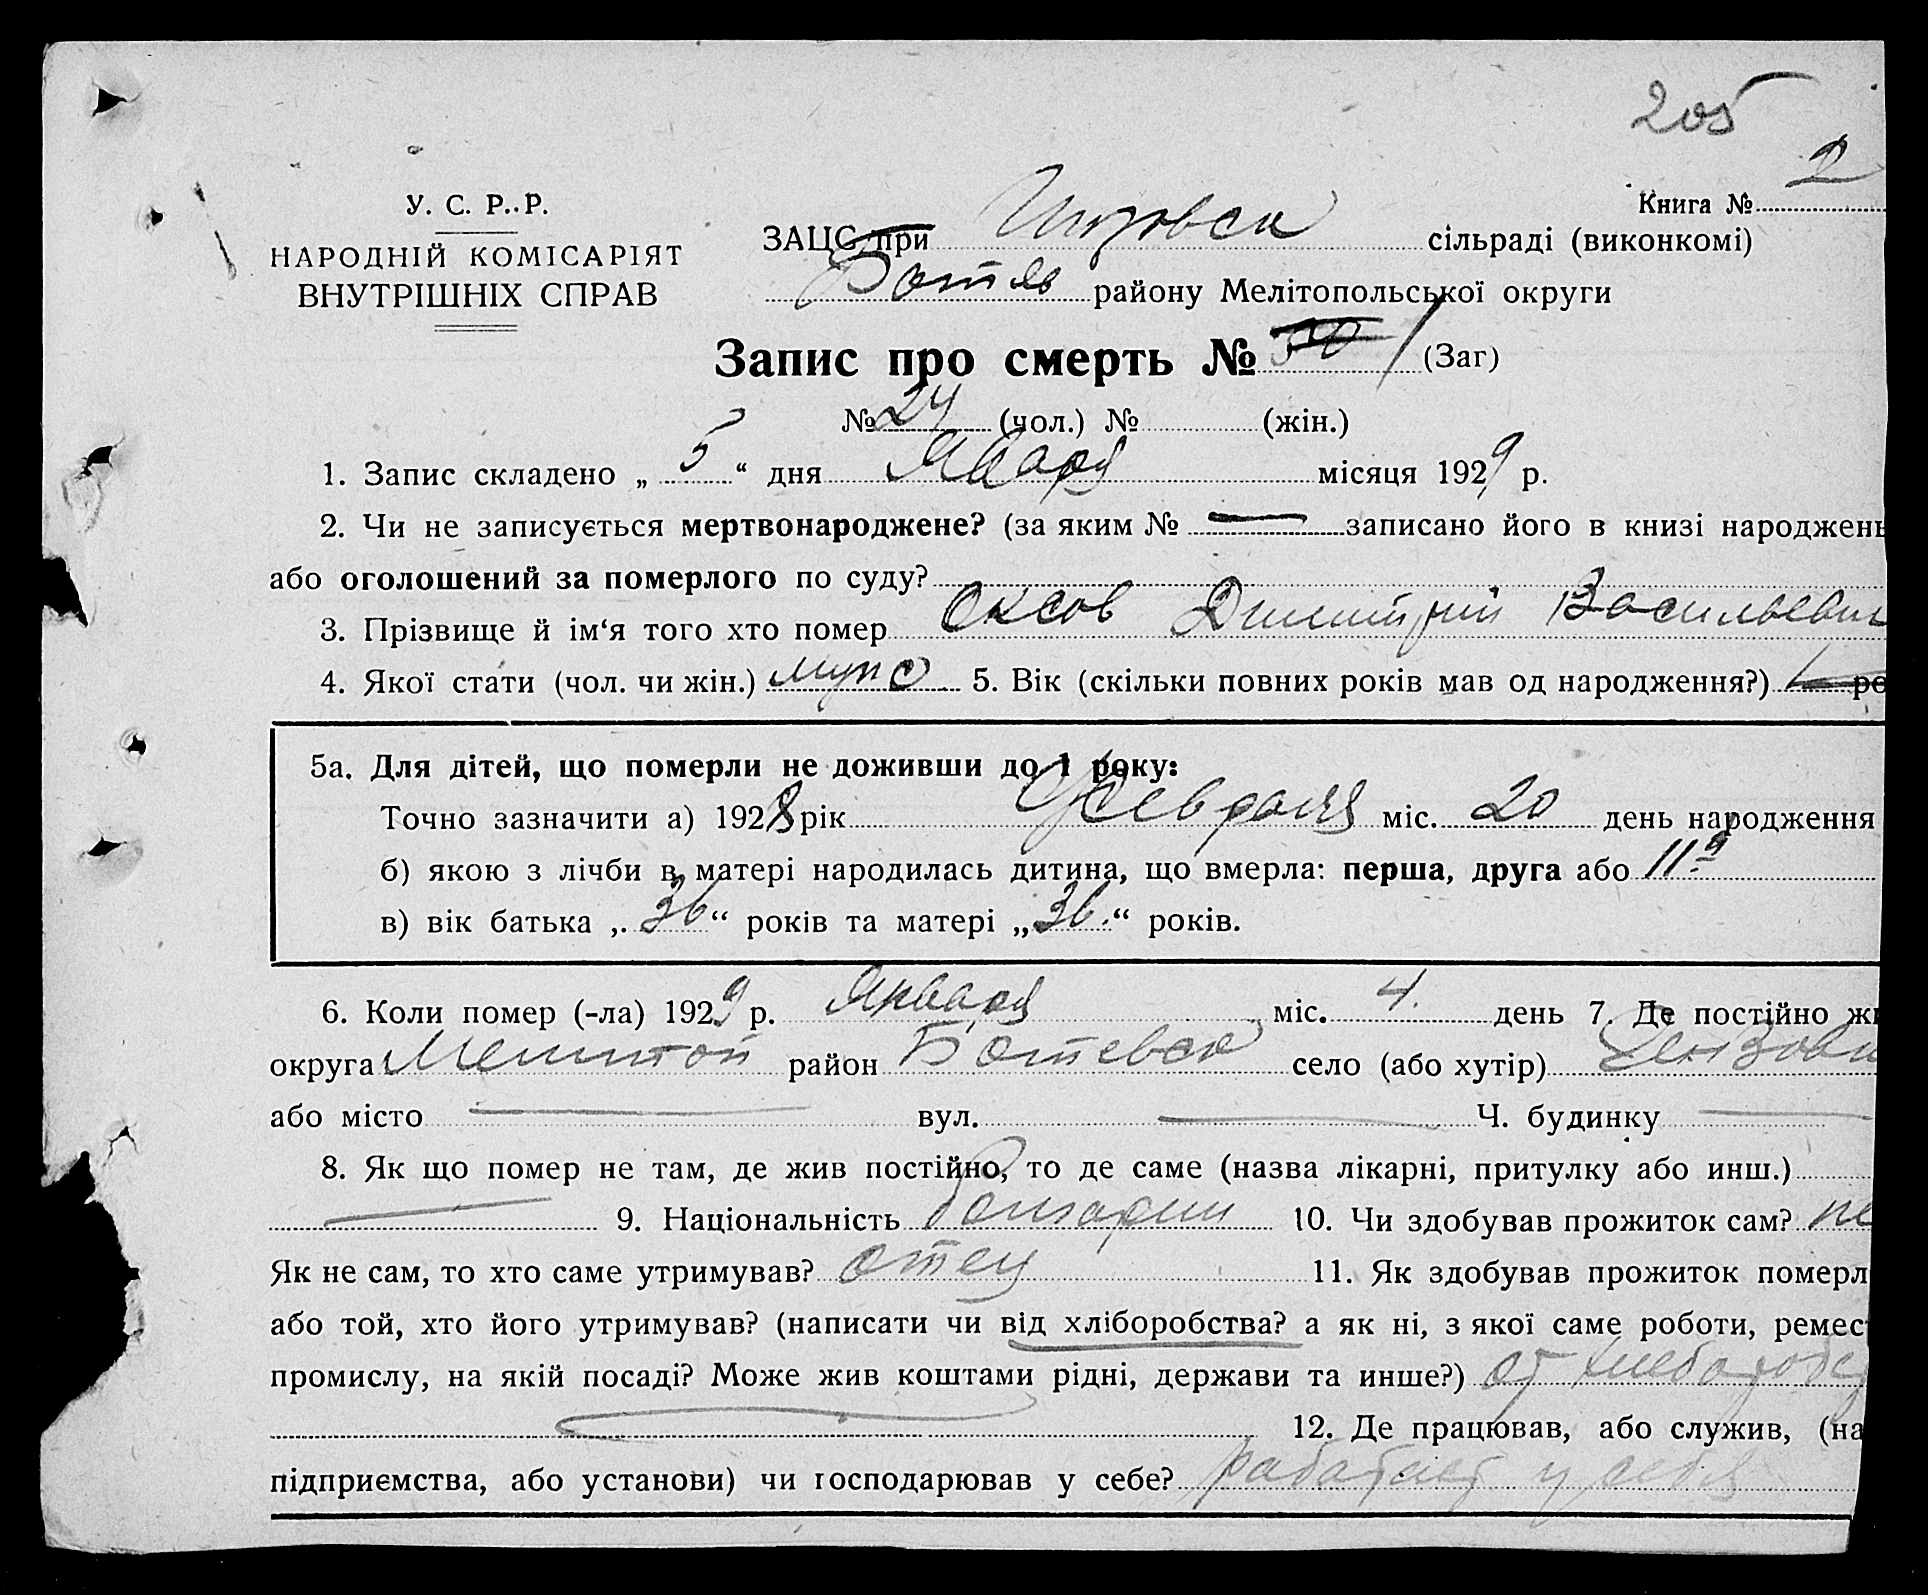 205
2
У. С. Р. Р.
Книга №
НАРОДНІЙ КОМІСАРІЯТ
ВНУТРІШНІХ СПРАВ
ЗАЦС при сільраді (виконкомі)
Ботьев району Мелітопольської округи
Запис про смерть № 1 (Заг)
№ 24 (чол.) № (жін.)
1. Запис складено „ 5 “ дня Января місяця 1929 р.
2. Чи не записується мертвонароджене? (за яким № — записано його в книзі народжень
або оголошений за померлого по суду?
3. Прізвище й ім‘я того хто помер Оксов Димитрий Васильевич
4. Якої стати (чол. чи жін.) 5. Вік (скільки повних років мав од народження?) ро
5а. Для дітей, що померли не доживши до 1 року:
Точно зазначити а) 1928 рік Февраля міс. 20 день народження
б) якою з лічби в матері народилась дитина, що вмерла: перша, друга або 11я
в) вік батька „ 36 “ років та матері „ 36. “ років.
6. Коли помер (-ла) 1929 р. Января міс. 4. день 7. Де постійно жи
округа Мелитоп район Ботевск село (або хутір)
або місто — вул. — Ч. будинку —
8. Як що помер не там, де жив постійно, то де саме (назва лікарні, притулку або инш.)
— 9. Національність болгарин 10. Чи здобував прожиток сам? не
Як не сам, то хто саме утримував? отец 11. Як здобував прожиток померл
або той, хто його утримував? (написати чи від хліборобства? а як ні, з якої саме роботи, ремес
промислу, на якій посаді? Може жив коштами рідні, держави та инше?) от хлебаробс
12. Де працював, або служив, (на
підприємства, або установи) чи господарював у себе? работает у себя